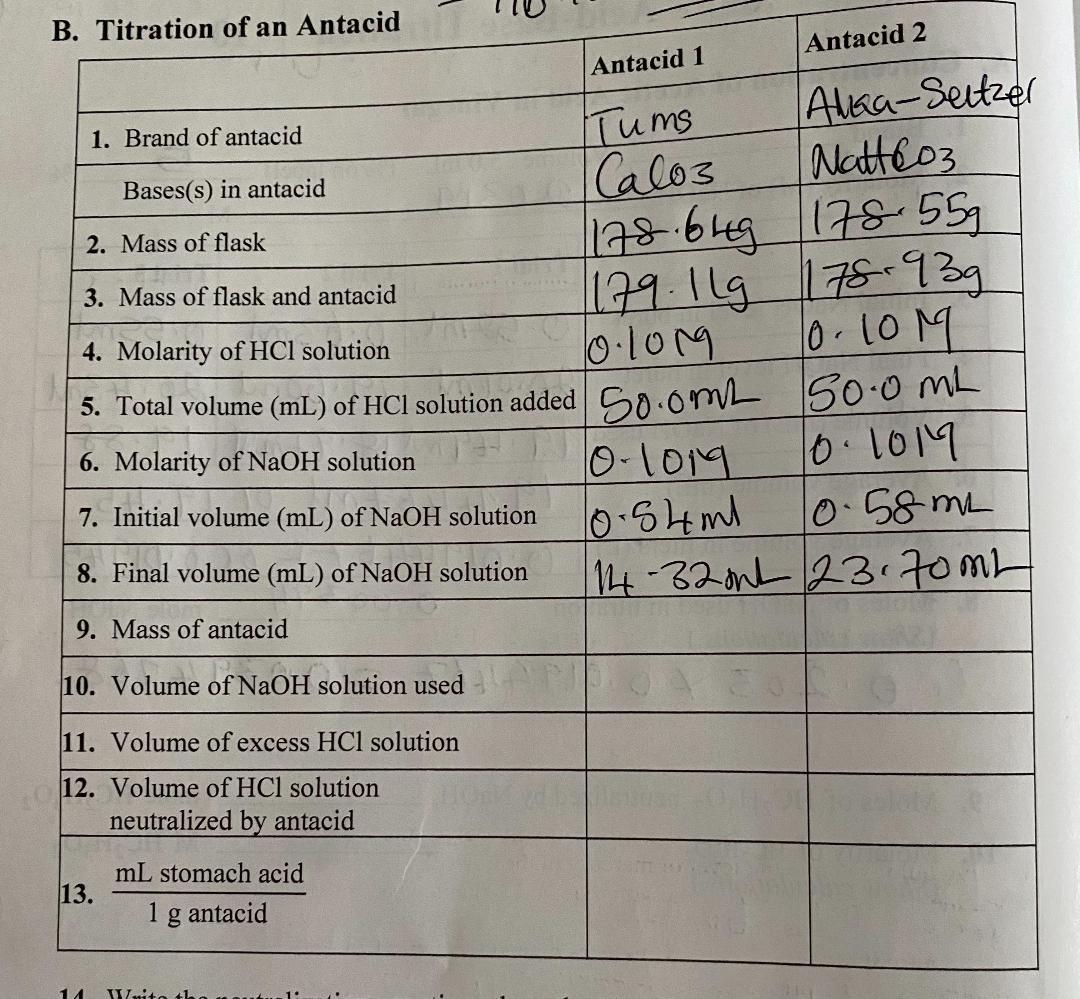 B. Titration of an Antacid
Antacid 1 Antacid 2
1. Brand of antacid Tums Alkaa-Seltzer
Bases(s) in antacid CaCo3 NaHCO3
2. Mass of flask 178.64g 178.55g
3. Mass of flask and antacid 179.11g 178.93g
4. Molarity of HCl solution 0.10M 0.10 M
5. Total volume (mL) of HCl solution added 50.0mL 50.0 mL
6. Molarity of NaOH solution 0.10M 0.10M
7. Initial volume (mL) of NaOH solution ml 0.58 mL
8. Final volume (mL) of NaOH solution 14.32mL 23.70mL
9. Mass of antacid
10. Volume of NaOH solution used
11. Volume of excess HCl solution
12. Volume of HCl solution
neutralized by antacid
mL stomach acid
13.
1 g antacid
14. Write the